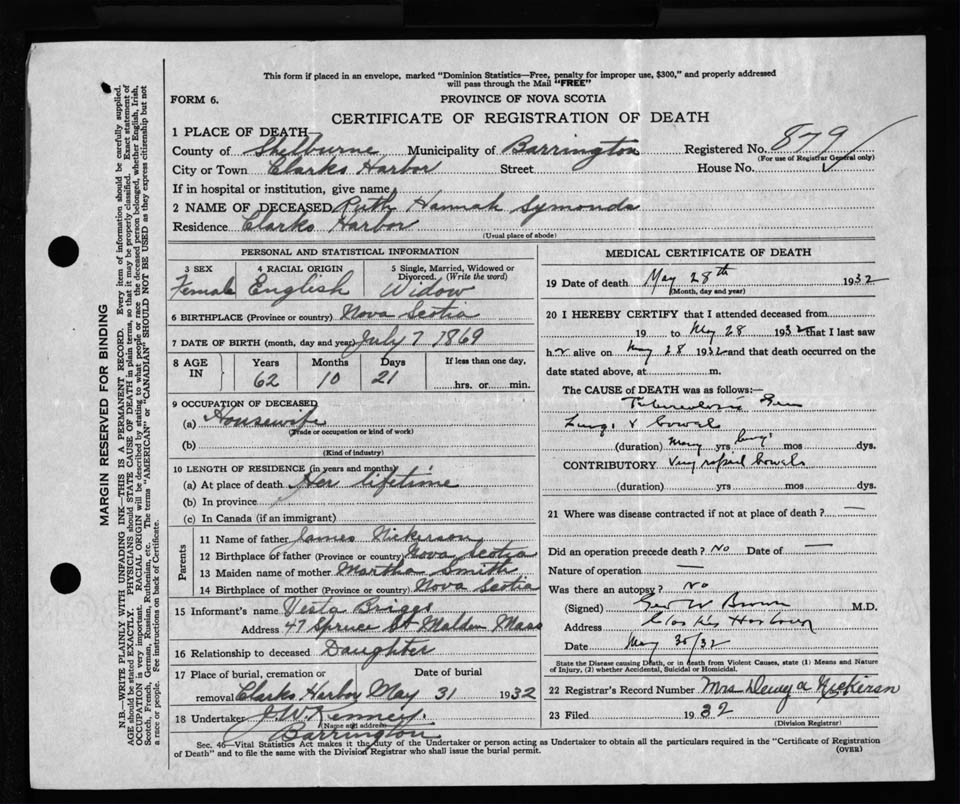 This form if placed in an envelope, marked "Dominion Statistics—Free, penalty for improper use, $300," and properly addressed
will pass through the Mail "FREE"
FORM 6.
PROVINCE OF NOVA SCOTIA
CERTIFICATE OF REGISTRATION OF DEATH
1 PLACE OF DEATH
County of Shelburne Municipality of Barrington Registered No. 879
(For use of Registrar General only)
City or Town Clarks Harbor Street House No.
If in hospital or institution, give name
2 NAME OF DECEASED Ruth Hannah Symonds
Residence Clarks Harbor
(Usual place of abode)
PERSONAL AND STATISTICAL INFORMATION
3 SEX 4 RACIAL ORIGIN 5 Single, Married, Widowed or
Divorced. (Write the word)
Female English Widow
6 BIRTHPLACE (Province or country) Nova Scotia
7 DATE OF BIRTH (month, day and year) July 7 1869
8 AGE IN Years Months Days If less than one day,
62 10 21 hrs. or min.
9 OCCUPATION OF DECEASED
(a) Housewife
(Trade or occupation or kind of work)
(b)
(Kind of industry)
10 LENGTH OF RESIDENCE (in years and months)
(a) At place of death Her lifetime
(b) In province
(c) In Canada (if an immigrant)
Parents
11 Name of father James Nickerson
12 Birthplace of father (Province or country) Nova Scotia
13 Maiden name of mother Martha Smith
14 Birthplace of mother (Province or country) Nova Scotia
15 Informant's name Vesta Briggs
Address 47 Spruce St Malden Mass
16 Relationship to deceased Daughter
17 Place of burial, cremation or Date of burial
removal Clarks Harbor May 31 1932
18 Undertaker J. W. Kenney.
(Name and address)
Barrington
MEDICAL CERTIFICATE OF DEATH
19 Date of death May 28th 1932
(Month, day and year)
20 I HEREBY CERTIFY that I attended deceased from
19 to May 28 1932 that I last saw
her alive on May 28 1932 and that death occurred on the
date stated above, at m.
The CAUSE of DEATH was as follows:—
Tuberculosis
Lungs & bowel
(duration) many yrs mos dys.
CONTRIBUTORY Very rapid bowels
(duration) yrs mos dys.
21 Where was disease contracted if not at place of death? —
Did an operation precede death? No Date of —
Nature of operation —
Was there an autopsy? No
(Signed) Geo W Brown M.D.
Address Clarks Harbour
Date May 30/32
State the Disease causing Death, or in death from Violent Causes, state (1) Means and Nature
of Injury, (2) whether Accidental, Suicidal or Homicidal.
22 Registrar's Record Number Mrs Dewy A Nickerson
23 Filed 1932
(Division Registrar)
Sec. 46—Vital Statistics Act makes it the duty of the Undertaker or person acting as Undertaker to obtain all the particulars required in the "Certificate of Registration
of Death" and to file the same with the Division Registrar who shall issue the burial permit.
(OVER)
MARGIN RESERVED FOR BINDING
N.B.—WRITE PLAINLY WITH UNFADING INK—THIS IS A PERMANENT RECORD. Every item of information should be carefully supplied.
AGE should be stated EXACTLY. PHYSICIANS should STATE CAUSE OF DEATH in plain terms, so that it may be properly classified. Exact statement of
OCCUPATION is very important. RACIAL ORIGIN will be described by stating to what people or race the deceased person belonged, whether English, Irish,
Scotch, French, German, Russian, Ruthenian, etc. The terms "AMERICAN" or "CANADIAN" SHOULD NOT BE USED as they express citizenship but not
a race or people. See instructions on back of Certificate.